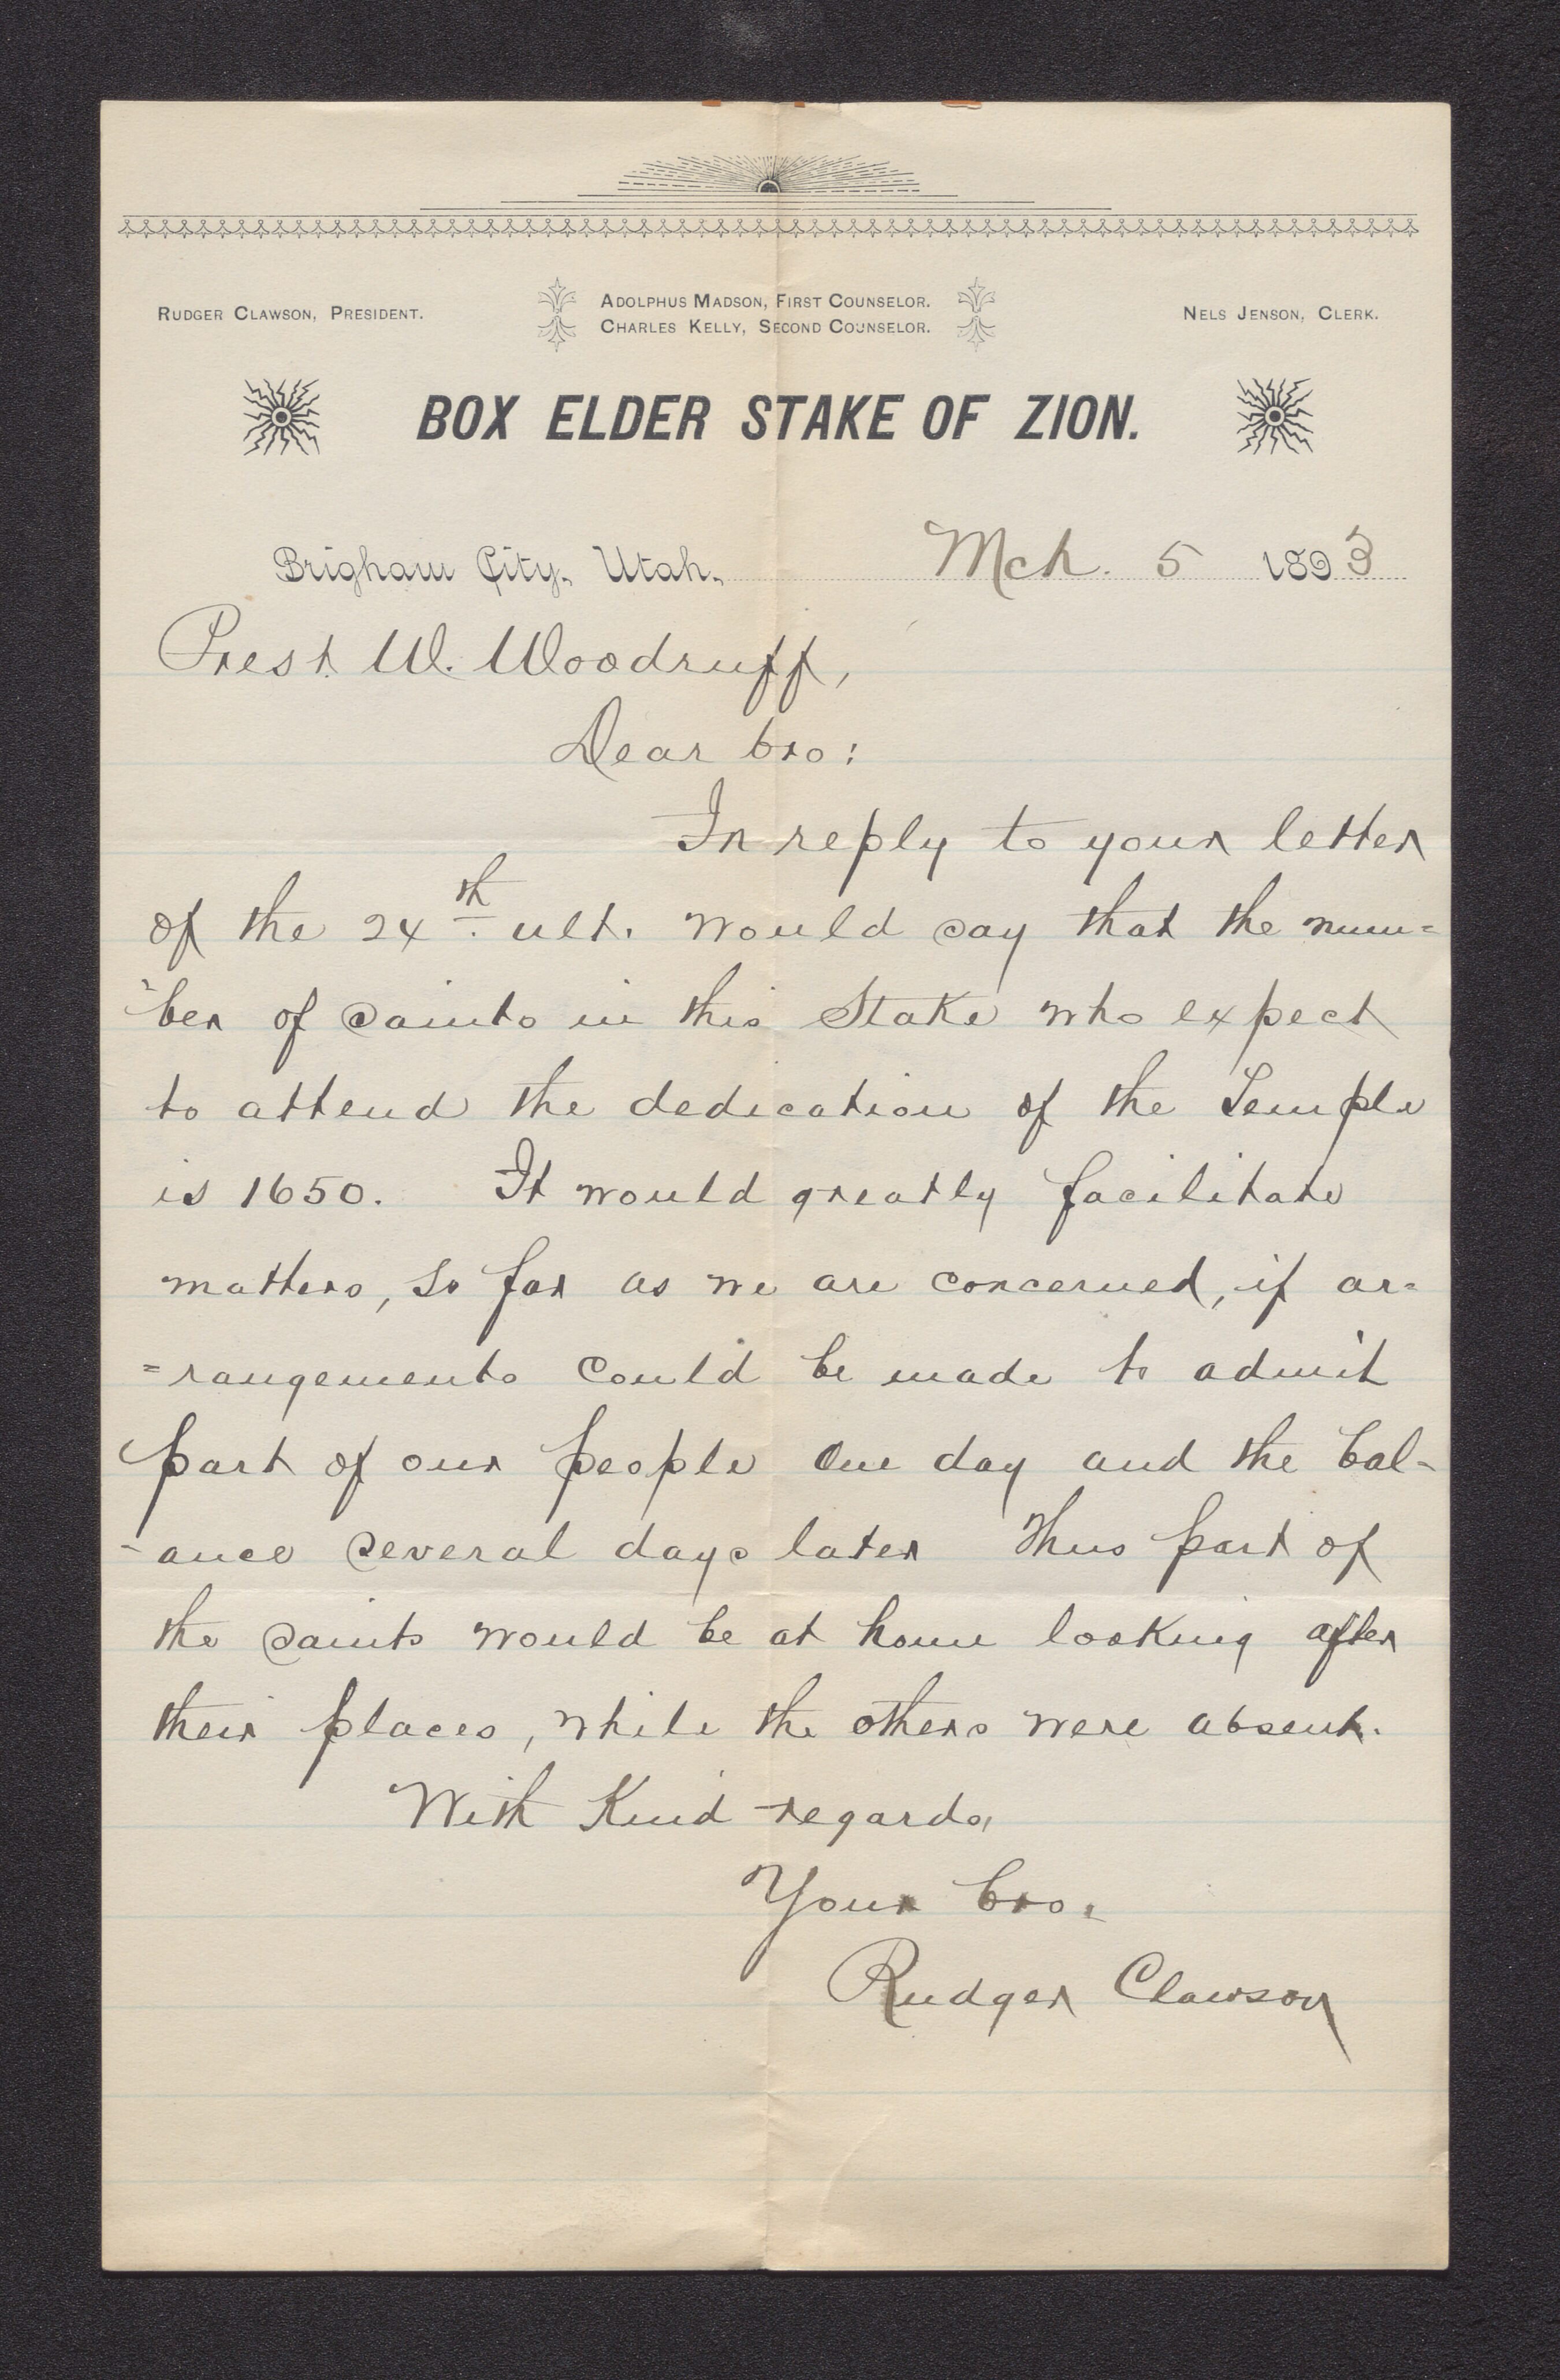 RUDGER CLAWSON, PRESIDENT.
ADOLPHUS MADSON, FIRST COUNSELOR.
CHARLES KELLY, SECOND COUNSELOR.
NELS JENSON, CLERK.
BOX ELDER STAKE OF ZION.
Brigham City, Utah, Mch. 5 1893
Prest. W. Woodruff,
Dear bro:
In reply to your letter
of the 24th ult. would say that the num=
=ber of saints in this Stake who expect
to attend the dedication of the Temple
is 1650. It would greatly facilitate
matters, so far as we are concerned, if ar=
=rangements could be made to admit
part of our people one day and the bal-
-ance several days later Thus part of
the saints would be at home looking after
their places, while the others were absent.
With Kind regards,
Your bro.
Rudger Clawson